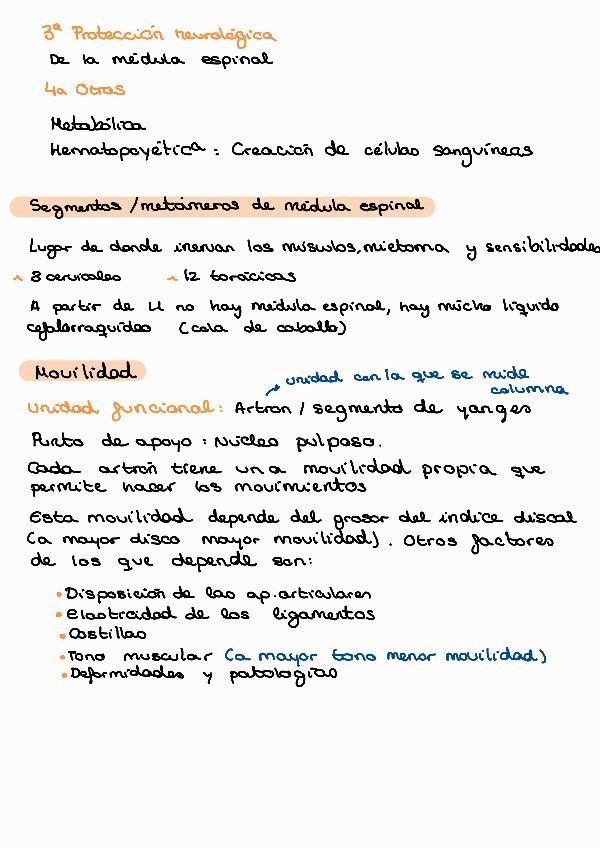 3ª Protección neurológica
De la médula espinal
4a Otras
Metabólica
Hematopoyética: Creación de células sanguíneas
Segmentos /metámeros de médula espinal
Lugar de donde inervan los músculos, mietoma y sensibilidades
^ 8 cervicales ^ 12 torácicas
A partir de L1 no hay médula espinal, hay mucho líquido
cefalorraquídeo (cola de caballo)
Movilidad
unidad con la que se mide
columna
Unidad funcional: Artron / segmento de yanges
Punto de apoyo: Núcleo pulposo.
Cada artrón tiene una movilidad propia que
permite hacer los movimientos
Esta movilidad depende del grosor del índice discal
(a mayor disco mayor movilidad). Otros factores
de los que depende son:
• Disposición de las ap. articulares
• Elasticidad de los ligamentos
• Costillas
• Tono muscular (a mayor tono menor movilidad)
• Deformidades y patologías